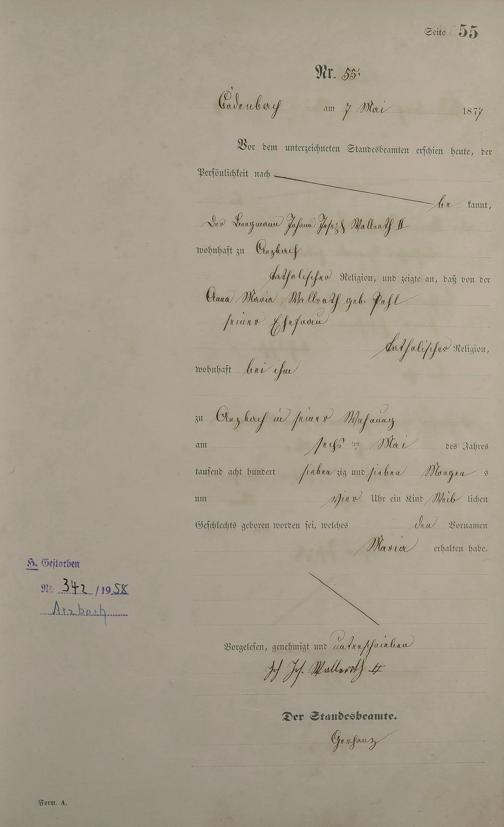 Seite 55
Nr. 55.
Cadenbach am 7 Mai 1877
Vor dem unterzeichneten Standesbeamten erschien heute, der
Persönlichkeit nach
be kannt,
Der Bergmann Johann Joseph Wallrath II
wohnhaft zu Arzbach
katholischer Religion, und zeigte an, daß von der
Anna Maria Wallrath geb. Pehl
seiner Ehefrau
katholischer Religion,
wohnhaft bei ihm
zu Arzbach in seiner Wohnung
am sechs ten Mai des Jahres
tausend acht hundert sieben zig und sieben Morgen s
um vier Uhr ein Kind Weib lichen
Geschlechts geboren worden sei, welches den Vornamen
Maria erhalten habe.
H. Gestorben
Nr. 342 /1958
Arzbach
Vorgelesen, genehmigt und unterschrieben
Joh Jos. Wallrath II
Der Standesbeamte.
Form. A.